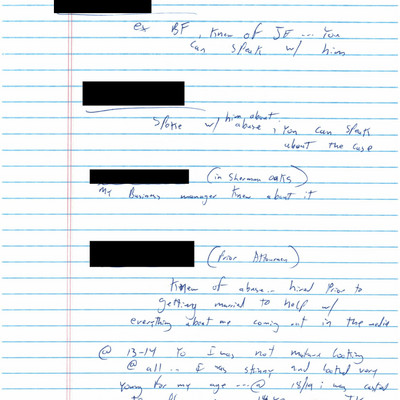 ex BF, Knew of JE ... You
can speak w/ him
Spoke w/ him about
abuse, You can speak
about the case
(in Sherman Oaks)
my Business manager knew about it
(Prior Attorney)
Knew of abuse.. hired Prior to
getting married to help w/
everything about me coming out in the media
@ 13-14 Yo I was not mature looking
@ all .. I was skinny and looked very
Young for my age ... @ 18/19 i was casted